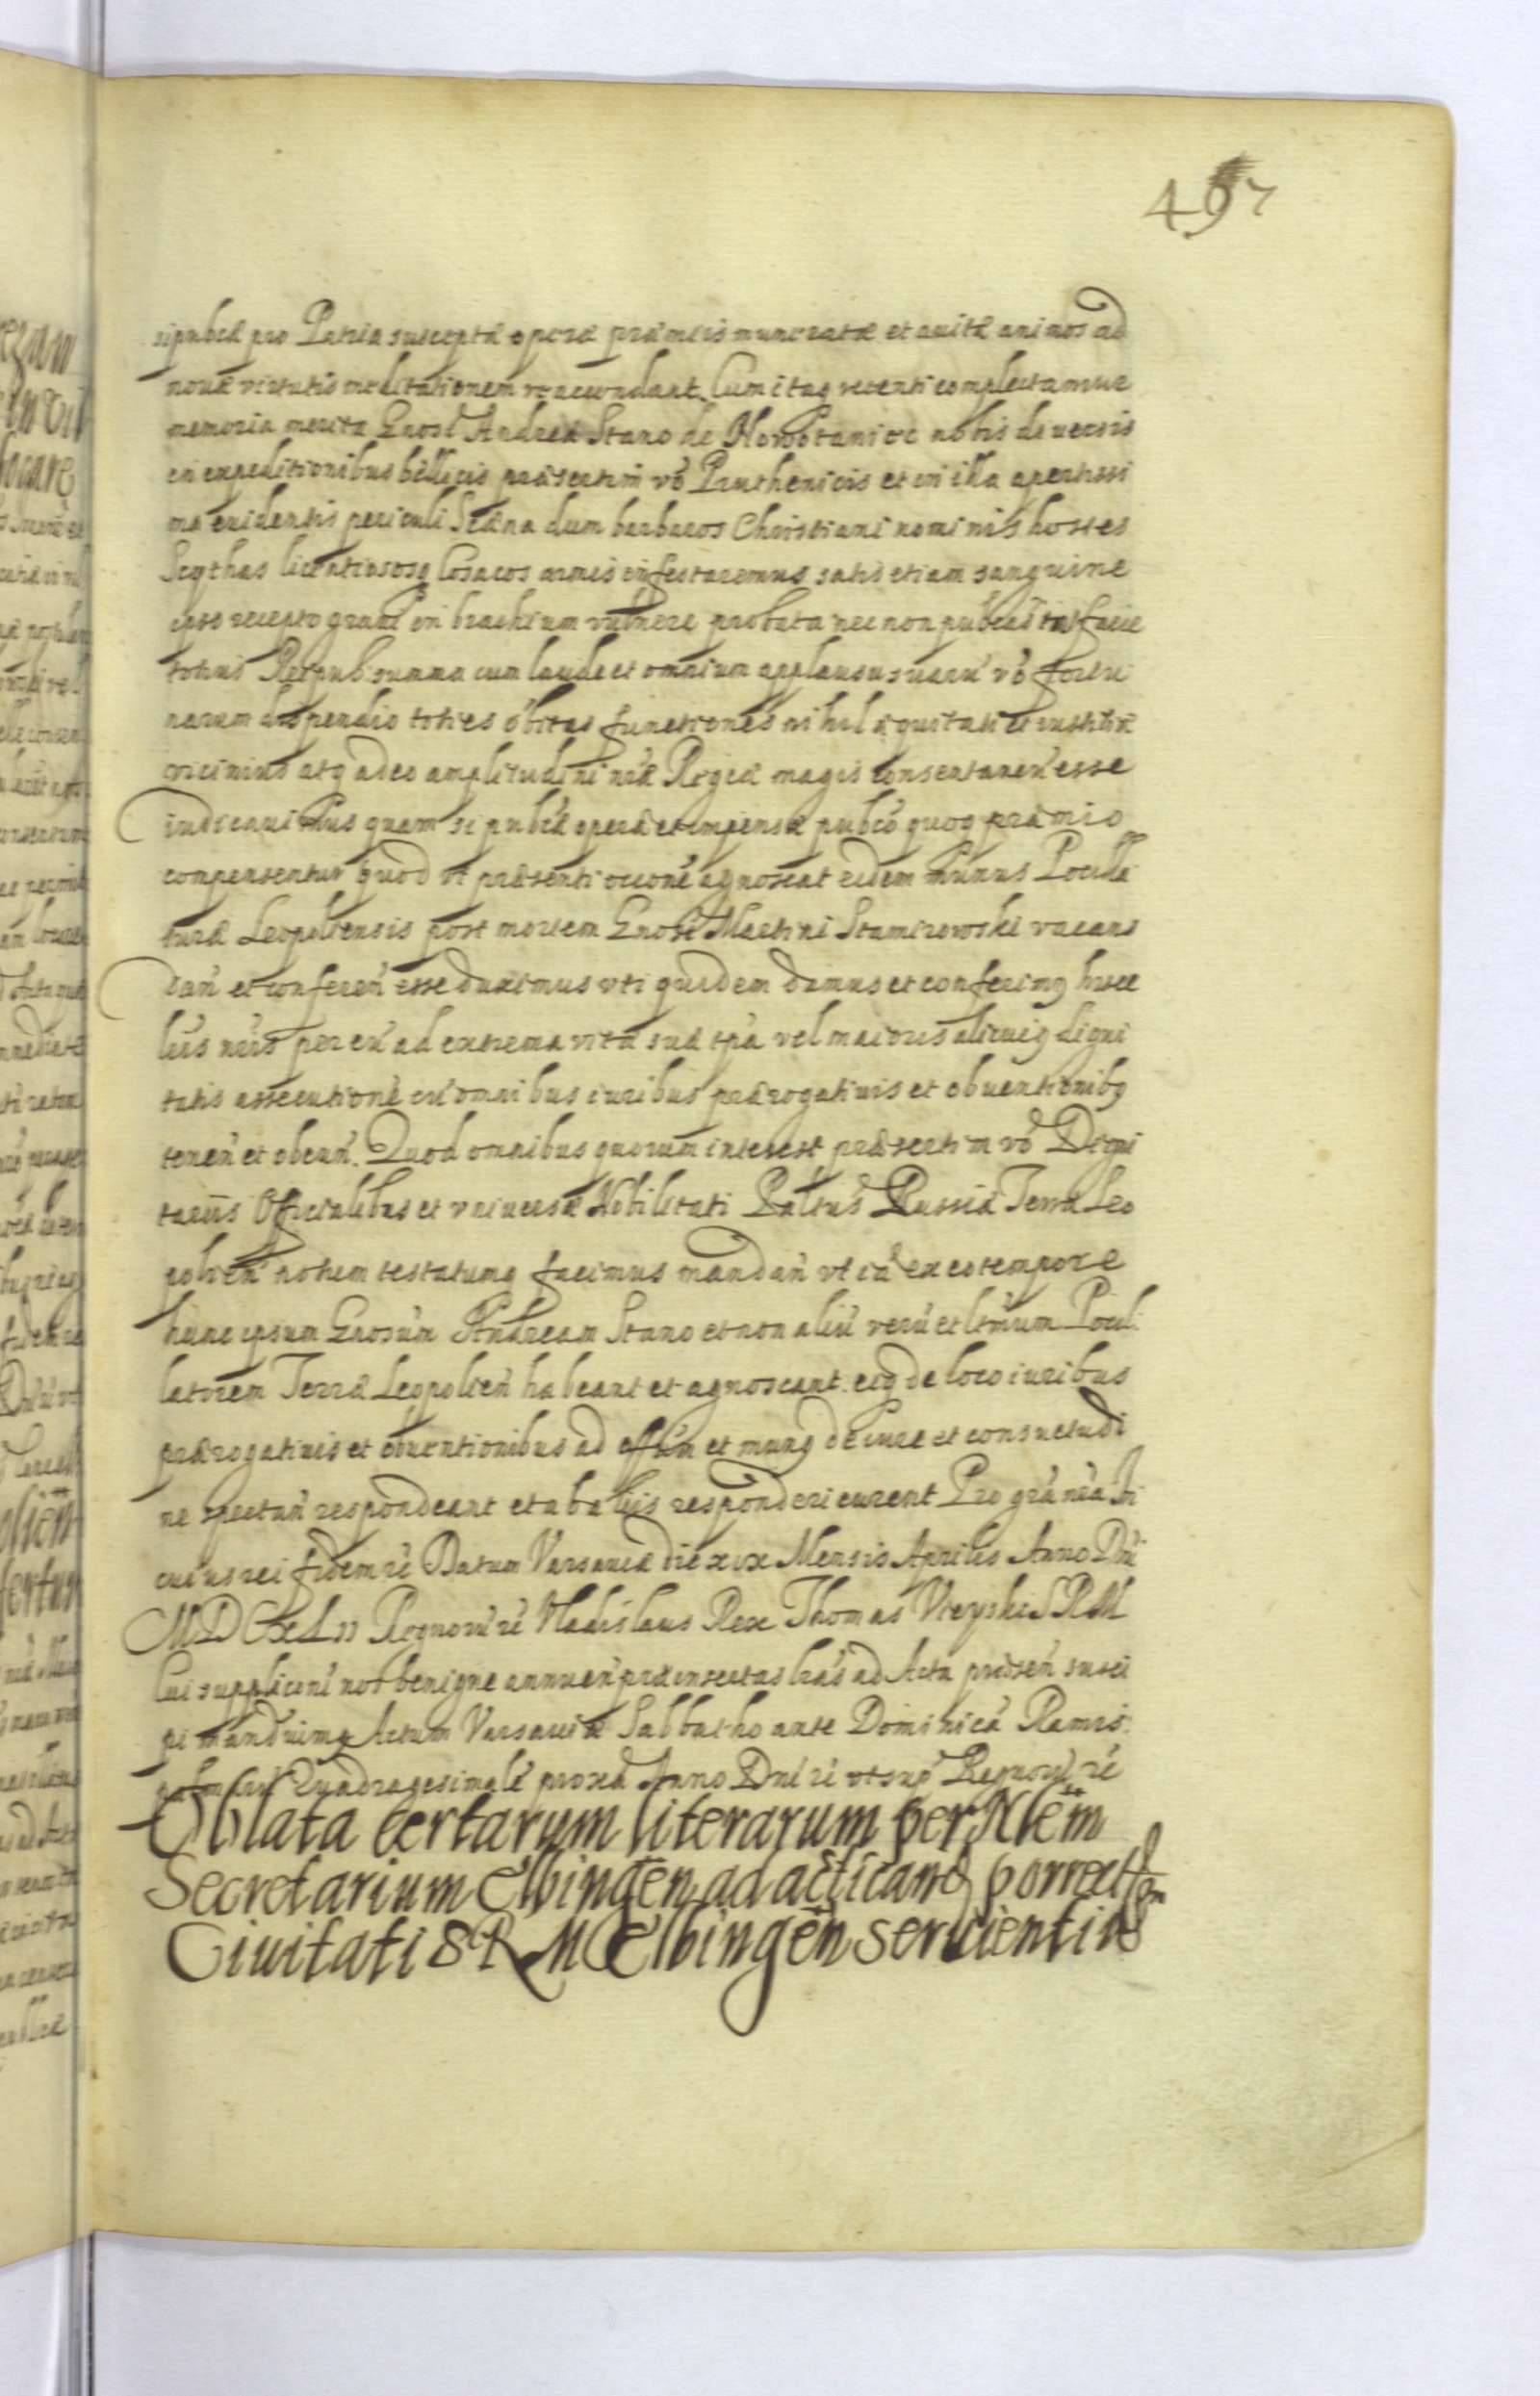 497
si publicè pro Patria susceptæ operæ præmiis muneratæ et auitæ animos ad
nouæ virtutis meditationem vt accendant. Cum itaq recenti complectamur
memoria merita Gnosi Andreæ Stano de Nowotaniec nobis diuersis
in expeditionibus bellicis præsertim vò Pruthenicis et in illa apertissi
ma euidentis periculi Scæna dum barbaros Christiani nominis hostes
Scythas licentiososq Cosacos armis infestaremus satis etiam sanguine
ipso recepto graui in brachium vulnere probata nec non pubcas in facie
totius Reipub: summa cum laude et omnium applausu suarũ vò fortu
narum dispendio toties obitas functiones nihil æquitati et iustitiæ
vicinius atq adeo amplitudini nræ Regiæ magis consentaneũ esse
iudicauimus quam si pubcæ operæ et impensæ pubco quoq præmio
compensentur quod vt præsenti occone agnoscat eidem munus Pocilla
turæ Leopoliensis post mortem Gnosi Martini Stamirowski vacans
dan̄ et conferen̄ esse duximus vti quidem damus et conferimq hisce
lris nris per eũ ad extrema vitæ suæ tpa vel maioris alicuiq digni
tatis assecutionē cũ omnibus iuribus prærogatiuis et obuentionibq
tenen̄ et obeun̄. Quod omnibus quorum interest præsertim vò Digni
tariis Officialibus et vniuersæ Nobilitati Paltus Russiæ Terræ Leo
polien̄ notum testatumq facimus mandan̄ vt iã ex eo tempore
hunc ipsum Gnosum Andream Stano et non aliũ verũ et ltimum Pocil
latorem Terræ Leopolien̄ habeant et agnoscant eiq de loco iuribus
prærogatiuis et obuentionibus ad offum et munq de iure et consuetudi
ne spectan̄ respondeant et ab aliis responderi curent Pro gra nra In
cuius rei fidem rē Datum Varsauiæ die xix Mensis Aprilis Anno Dni
MDCXLII Regnorũ rē Vladislaus Rex Thomas Vieyski SRM
Cui suppliconi nos benigne annuen̄ præinsertas lras ad Acta præsen̄ susci
pi mandauimq Actum Varsauiæ Sabbatho ante Dominicã Ramis
palmarũ Quadragesimalẽ proxã Anno Dni rē vt sup Regnorũ rē
Oblata certarum literarum per Nlem
Secretarium Elbingen̄ ad acticand porrect
Ciuitati SRM Elbingen̄ seruientiũ